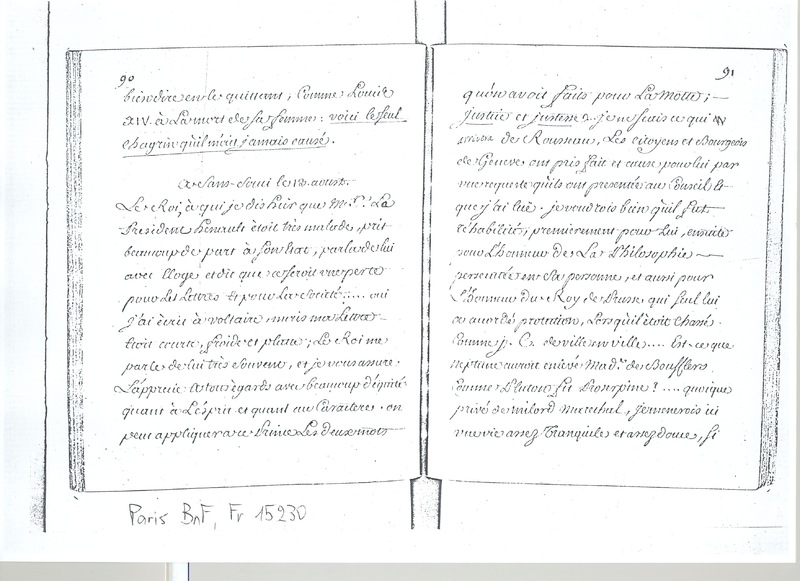 90
bien dire en le quittant, Comme Louis
XIV. à La mort de sa femme: voici le seul
Chagrin qu'il m'ait jamais causé.
a Sans-Souci le 13. aoust.
Le Roi, à qui je dis hier que Mr. Le
President henault étoit très malade, prit
beaucoup de part à son Etat, parla de lui
avec Eloge et dit que ce seroit une perte
pour Les Lettres et pour La Société..... oui
j'ai écrit à voltaire, mais ma Lettre
étoit courte, froide et platte; Le Roi me
parle de lui très souvent, et je vous assure
L'apprecie à tous egards avec beaucoup d'équité
quant à L'ésprit et quant au Caractere. on
peut appliquer a ce Prince Les deux mots
91
qu'en avoit faits pour La Motte; —
Justice et Justesse. je ne scais ce qui
arrivera de Rousseau, Les Citoyens et Bourgeois
de Geneve ont pris fait et cause pour lui par
une requete qu'ils ont presentée au Conseil &
que j'ai luë. je voudrois bien qu'il fut
réhabilité, premierement pour Lui, ensuite
pour L'honneur de La Philosophie —
persecutée en Sa personne, et aussi pour
L'honneur du Roy de Prusse qui seul lui
a accordé protection, Lorsqu'il étoit chassé
Comme J. C. de ville en ville.... Est-ce que
neptune auroit enlevé Made. de Boufflers
Comme Pluton fit Proserpine? .... quoique
privé de milord Marechal, je menerois ici
une vie assez Tranquile et assez douce, si
Paris BnF, Fr 15230